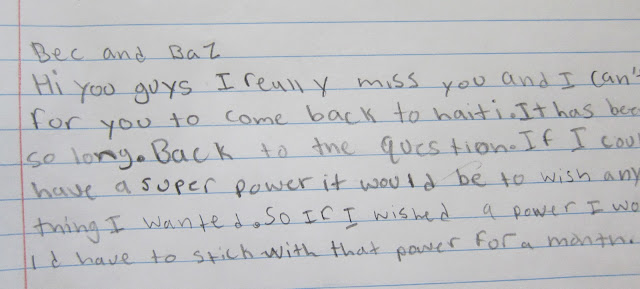 Bec and Baz
Hi you guys I really miss you and I can't
for you to come back to haiti. It has bee
so long. Back to the question. If I coul
have a super power it would be to wish any
thing I wanted. So If I wished a power I wo
ld have to stick with that power for a month.